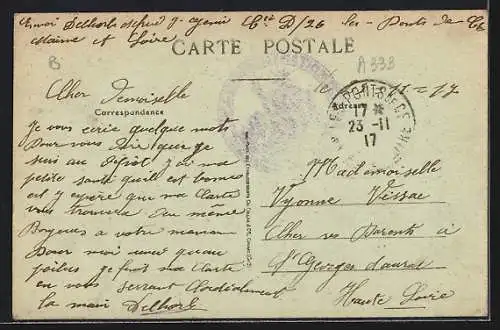 Envoi Delhorb 9e génie Cie D/26 les Ponts de Cé
Maine et Loire
CARTE POSTALE
B
A 333
Cher Demoiselle
11=17
Correspondance
Adresse
LES PONTS DE CE
17 *
23 -11
17
Je vous écrie quelque mots
Pour vous dire que je
suis au Dépôt j'ai ma
petite santé qu'il est bonne
et j'espère que ma Carte
vous trouvera de même
Bonjour a votre maman
Pour moi avec qu'au
poilus je finit ma Carte
en vous serrant Cordialement
la main Delhorb
Mademoiselle
Yvonne Vissac
Cher ses Parents a
St Georges d'aurat
Haute Loire